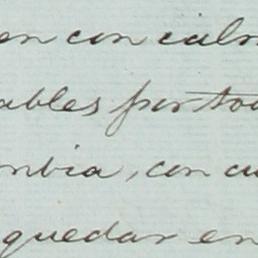 en con calm
ables por to
mbia, con cu
quedar en